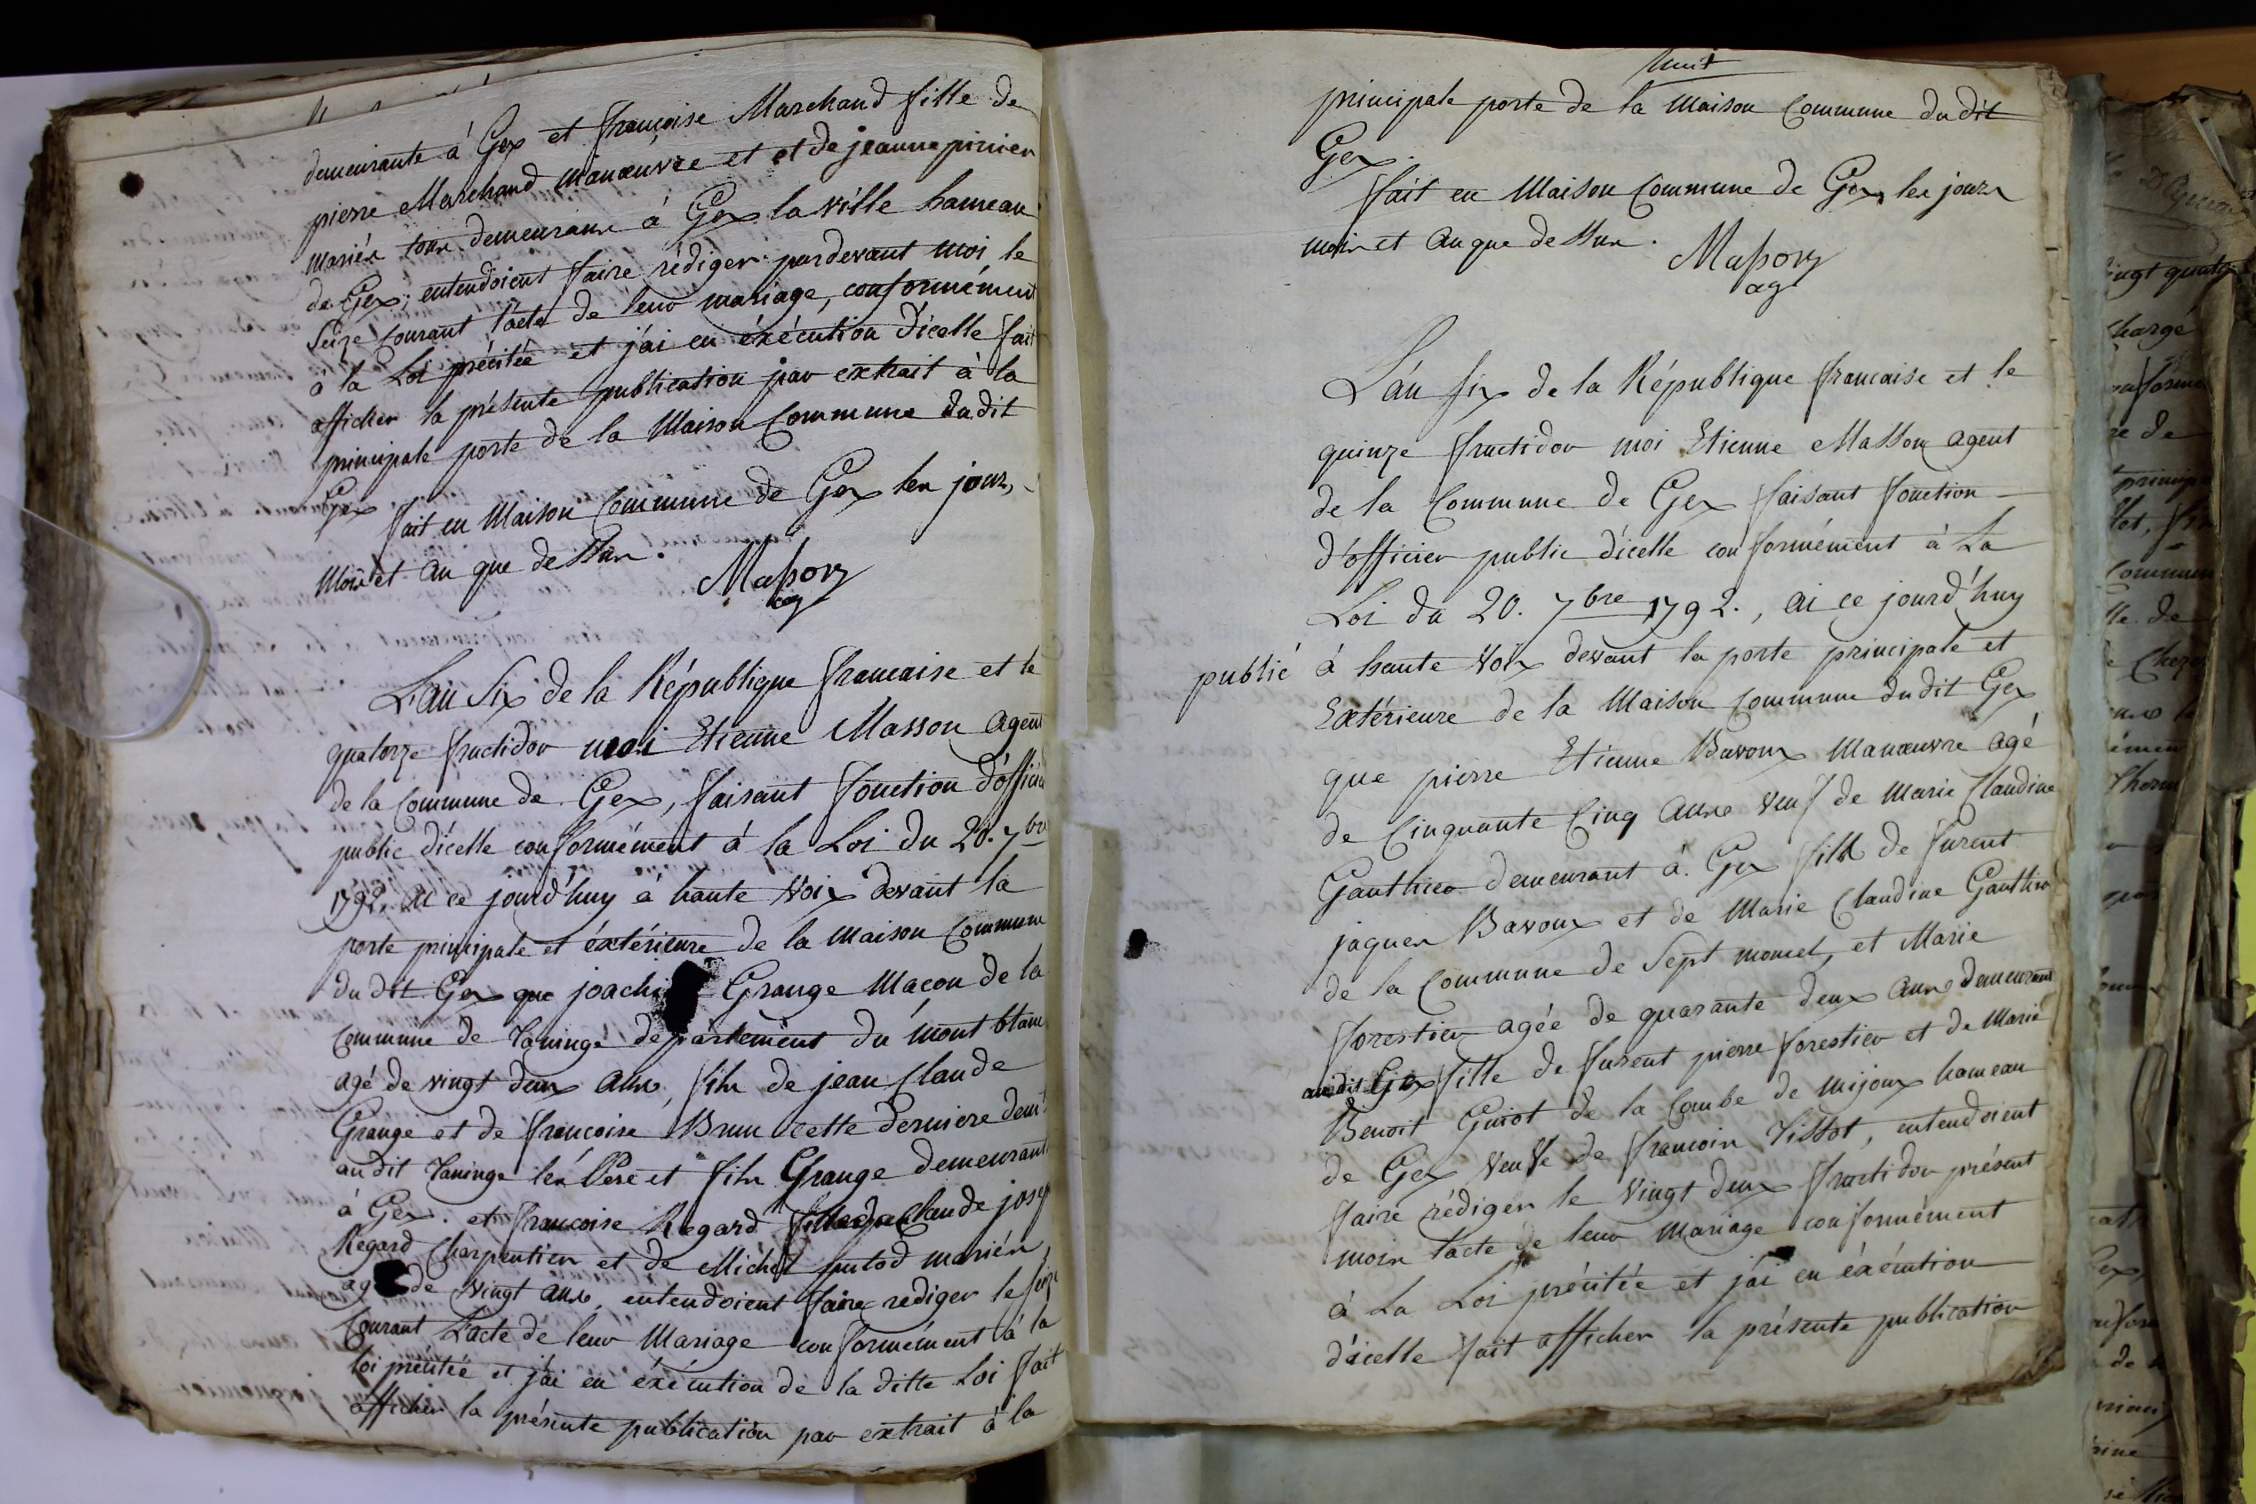 demeurante à Gex et françoise Marchand fille de
pierre Marchand manœuvre et et de jeanne pirrier
mariés tous demeurans à Gex la ville hameau
de Gex; entendoient faire rédiger pardevant moi le
Seize courant l'acte de leur mariage, conformément
à la Loi précitée et j'ai en éxécution d'icelle fait
afficher la présente publication par extrait à la
principale porte de la Maison Commune dudit
Gex
fait en Maison Commune de Gex les jour,
Mois et an que dessus.
Masson
ag
L'an Six de la République francaise et le
quatorze fructidor moi Etienne Masson agent
de la Commune de Gex, faisant fonction d'officier
public d'icelle conformément à la Loi du 20. 7bre
1792, ai ce jourd'huy à haute Voix devant la
porte principale et éxtérieure de la maison Commune
du dit Gex que joachi Grange Macon de la
Commune de Taninge département du mont blanc
agé de vingt deux ans, fils de jean Claude
Grange et de francoise Brun cette derniere demt
audit Taninge les Pere et fils Grange demeurant
à Gex. et francoise Regard fille de Claude josep
Regard Charpentier et de Michel putod mariés,
ag de vingt ans, entendoient faire rediger le seize
Courant L'acte de leur Mariage conformément à la
loi précitée et j'ai en éxécution de la ditte Loi fait
afficher la présente publication par extrait à la
huit
principale porte de la Maison Commune dudit
Gex.
fait en Maison Commune de Gex, les jours
mois et an que dessus.
Masson
ag
L'an six de la République francaise et le
quinze fructidor moi Etienne Masson agent
de la Commune de Gex faisant fonction
d'officier public d'icelle conformément à La
Loi du 20. 7bre 1792., ai ce jourd'huy
publié à haute Voix devant la porte principale et
Extérieure de la Maison Commune dudit Gex
que pierre Etienne Bavoux Manœuvre agé
de Cinquante Cinq ans veuf de Marie Claudine
Gauthier demeurant à Gex fils de furent
jaques Bavoux et de Marie Claudine Gauthier
de la Commune de Sept moncel, et Marie
forestier agée de quarante deux ans demeurant
audit Gex fille de furent pierre forestier et de Marie
Benoit Guiot de la Combe de mijoux hameau
de Gex veuve de francois Tissot, entendoient
faire rédiger le vingt deux fructidor présent
mois l'acte de leur Mariage conformément
à La Loi précitée et j'ai en éxécution
d'icelle fait afficher la présente publication